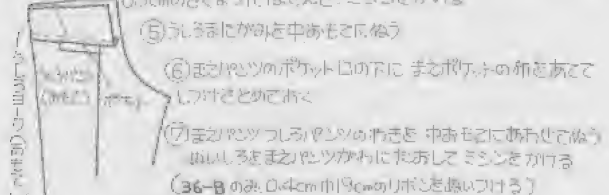 ⑤うしろまたがみを中おもてにぬう
⑥まえパンツのポケット口の下に まえポケットの布をあてて
しつけでとめておく
⑦まえパンツ うしろパンツのわきを 中おもてにあわせてぬう
ぬいしろをまえパンツがわにたおして ミシンをかける
(36-Bのみ、0.4cm巾19cmのリボンを縫いつける)
うしろヨーク(おもて)
ポケット